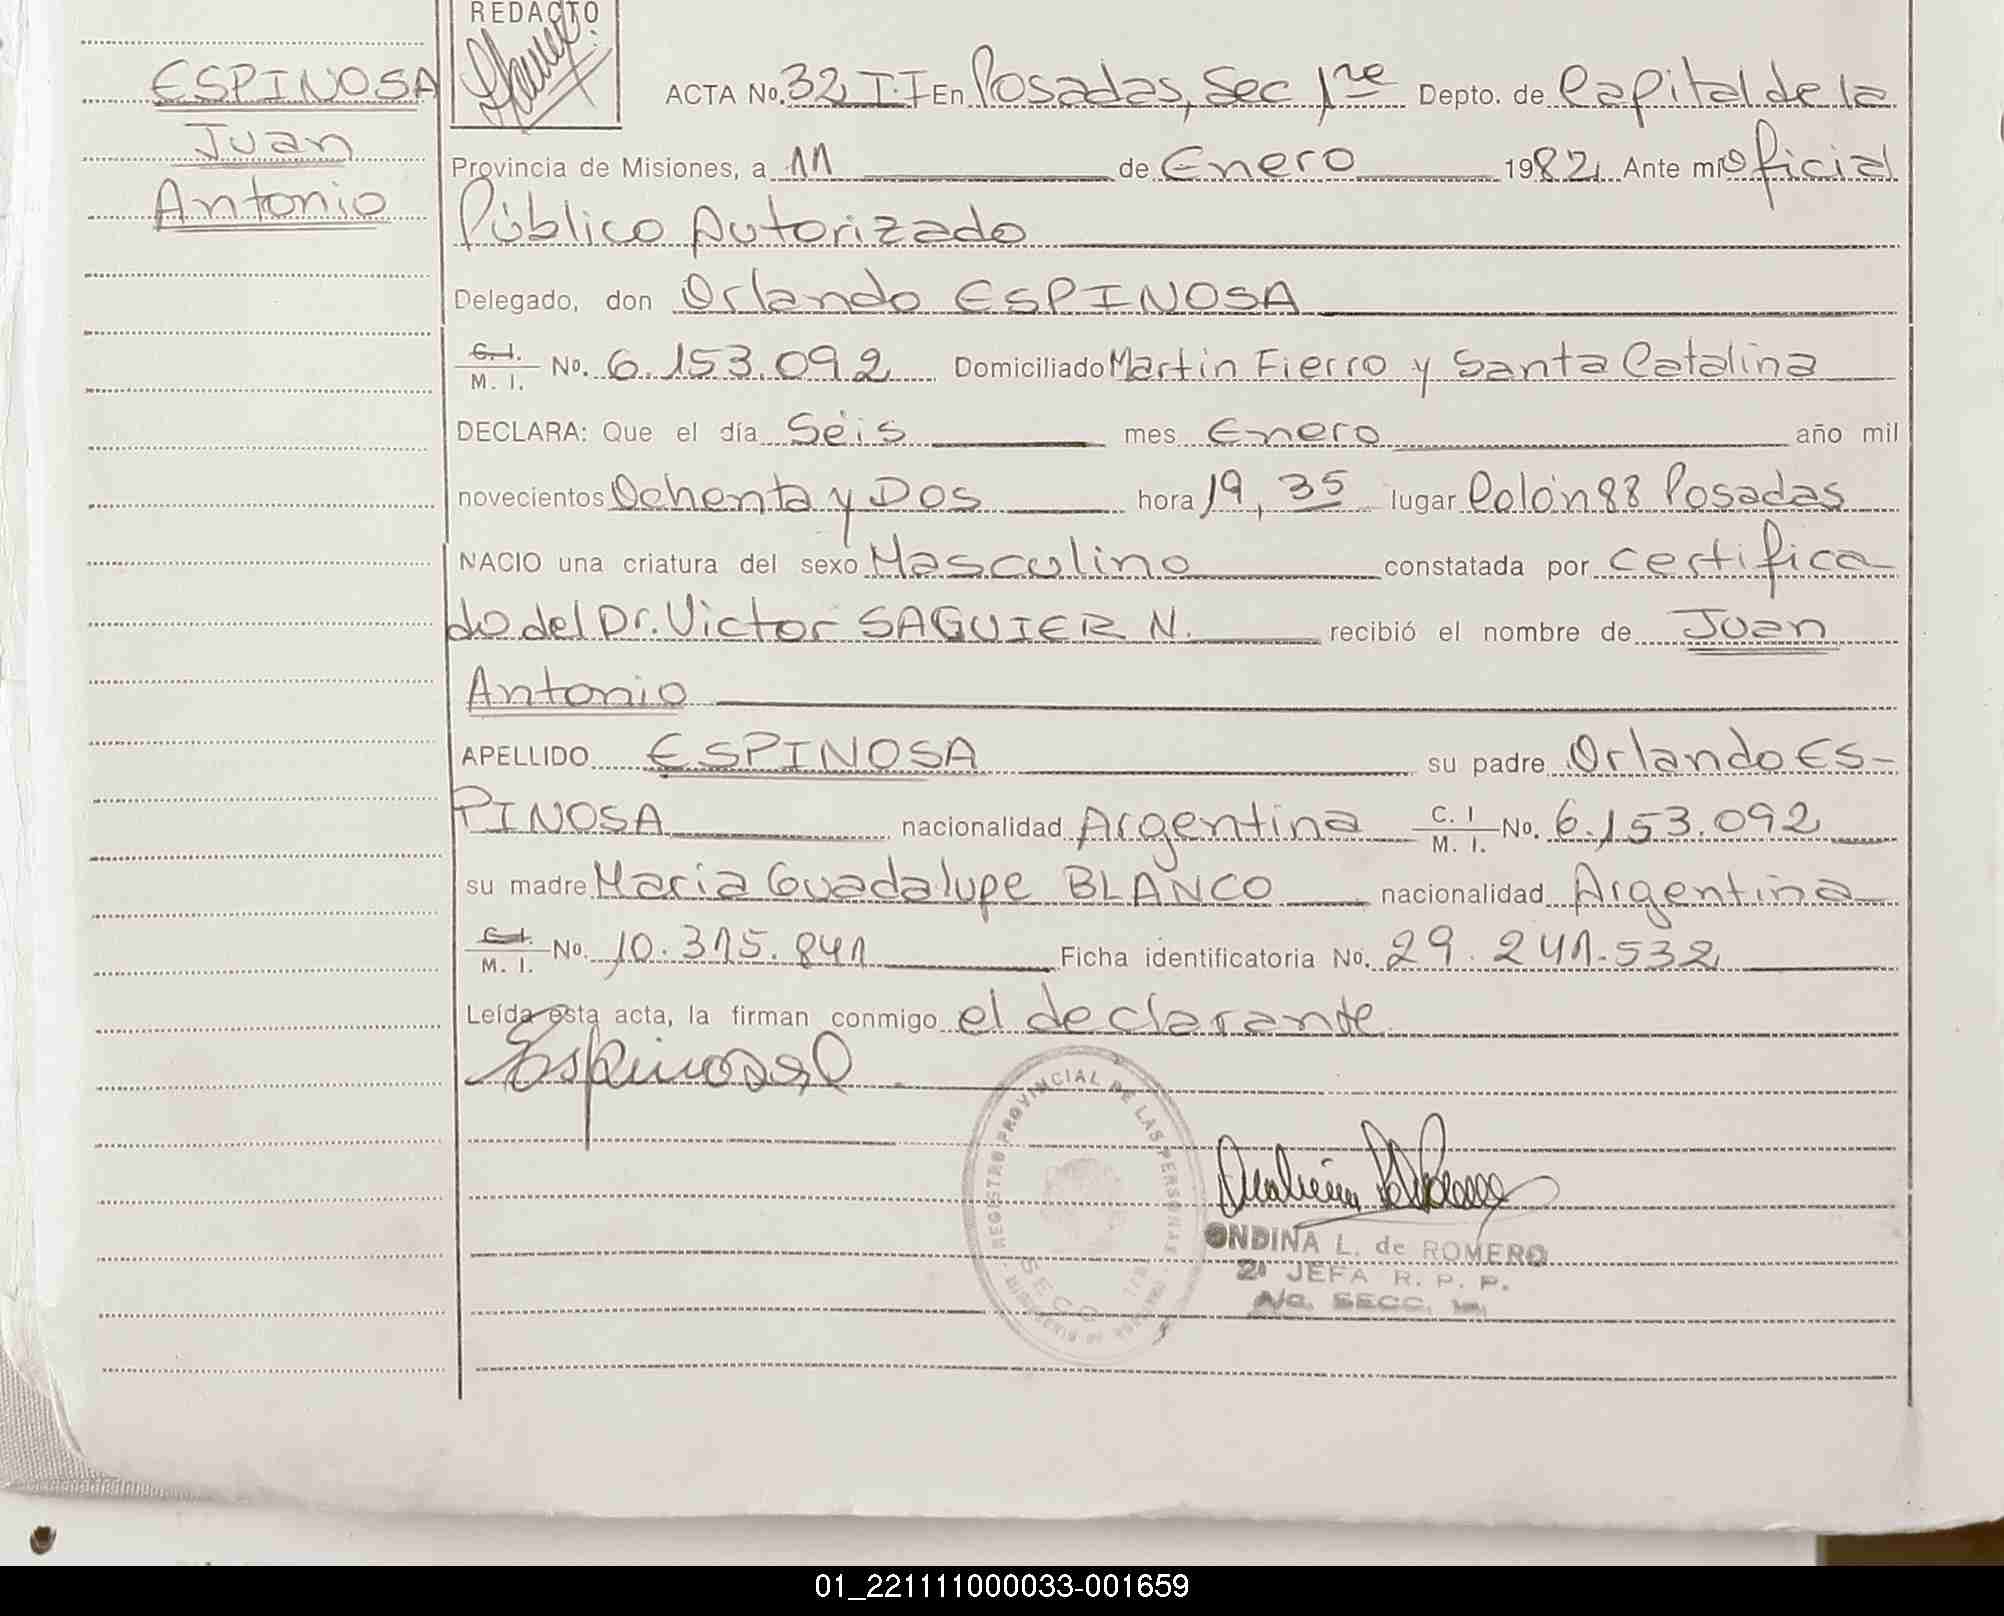 REDACTO
ESPINOSA
Juan
Antonio
ACTA No. 32 T. I En Posadas, Sec 1ra Depto. de Capital de la
Provincia de Misiones, a 11 de Enero 1982 Ante mi Oficial
Público Autorizado
Delegado, don Orlando ESPINOSA
C. I. M. I. No. 6.153.092 Domiciliado Martin Fierro y Santa Catalina
DECLARA: Que el día Seis mes Enero año mil
novecientos Ochenta y Dos hora 19,35 lugar Colón 88 Posadas
NACIO una criatura del sexo Masculino constatada por certifica
do del Dr. Victor SAGUIER N. recibió el nombre de Juan
Antonio
APELLIDO ESPINOSA su padre Orlando ES-
PINOSA nacionalidad Argentina C. I M. I. No. 6.153.092
su madre Maria Guadalupe BLANCO nacionalidad Argentina
C. I. M. I. No. 10.315.841 Ficha identificatoria No. 29.241.532
Leída esta acta, la firman conmigo el declarante
Espinosa O
REGISTRO PROVINCIAL DE LAS PERSONAS
SECC
ONDINA L. de ROMERO
2ª JEFA R. P. P.
A/C. SECC. 1a.
01_221111000033-001659